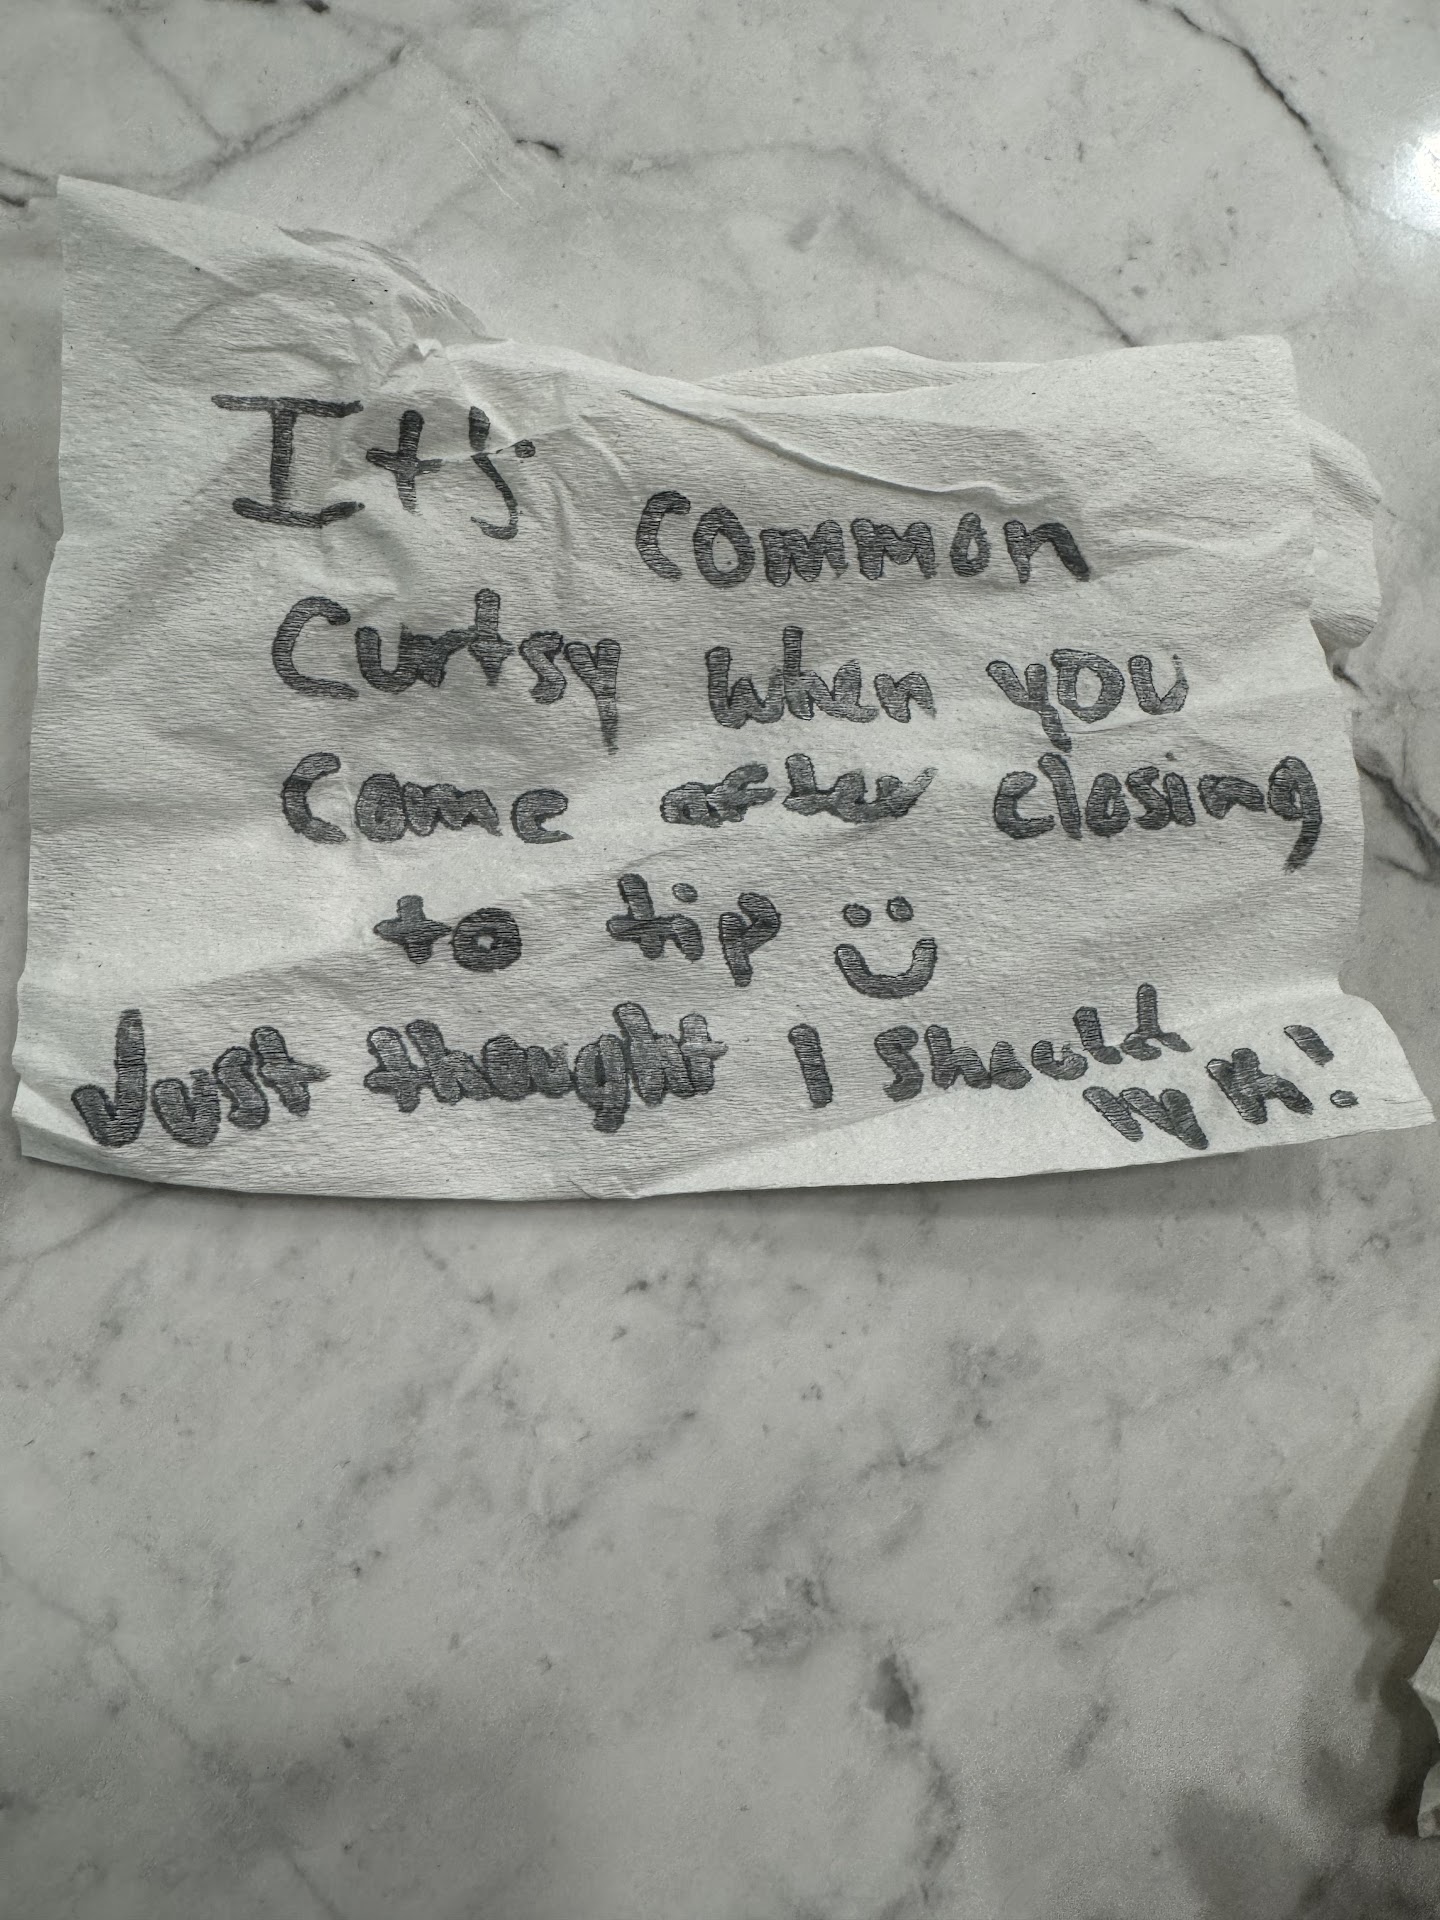 It's common
Curtsy when you
come after closing
to tip :)
Just thought I should